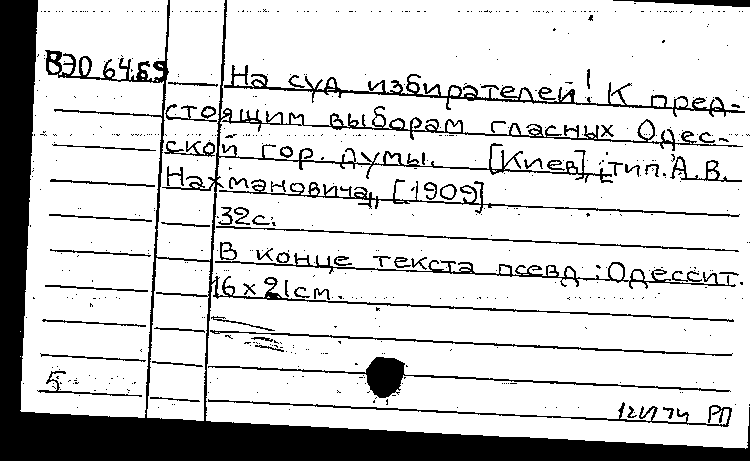 ВЭО 64.59
На суд избирателей! К пред-
стоящим выборам гласных Одес-
ской гор. думы. [Киев], тип. А.В.
Нахмановича, [1909].
32с.
В конце текста псевд.: Одессит.
16 х 21см.
5
РП